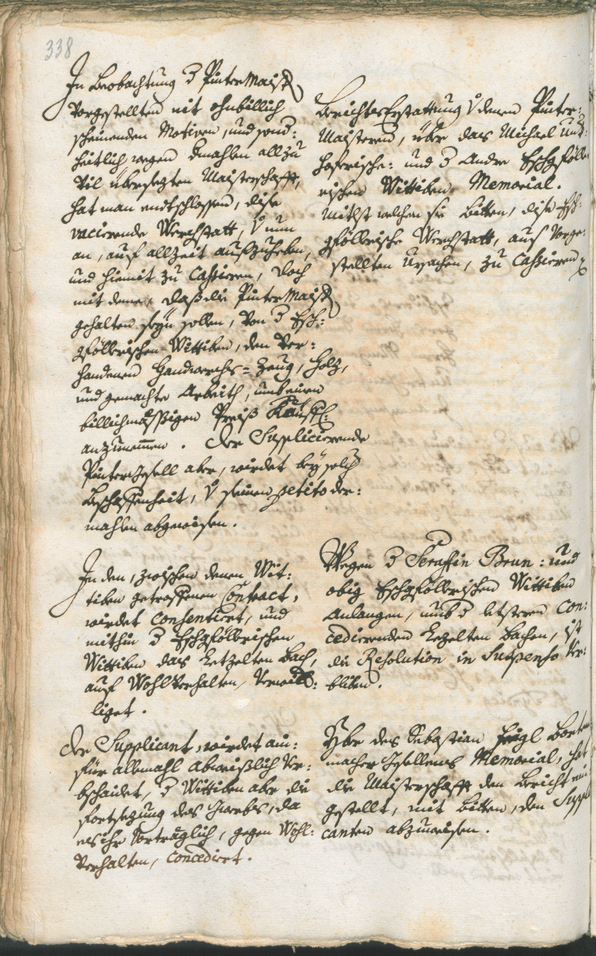 338
In Beobachtung d Pinter Maist
vorgestellten nit ohnbillich
scheinenden Motiven, und sond:
heitlich wegen demahlen allzu
vil übersezten Maisterschafft,
hat man entschlossen, dise
vacierende Werchstatt, v nun
an, auf allzeit aufzuheben,
und hiemit zu cassieren, doch
mit deme, daß die Pinter Maist
gehalten seyn sollen, von d Esch:
gföllerischen Wittiben, den ver:
handenen Handwerchs=Zeug, Holz,
und gemachte Arbeith, umb einen
billichmässigen Preiß
anzunemmen. Der Supplicierende
Pintergesell aber, wirdet bey solch
Beschaffenheit, v seinem petito der:
mahlen abgewisen.
Berichts Erstattung v denen Pinter:
Maistern, über das Michael
und d Andre Eschgföll:
erischen Wittiben, Memorial.
Mitlst welchen sie bitten, dise Esch:
gföllerische Werchstatt, aus vorge:
stellten Ursachen, zu cassieren
In den, zwischen denen Wit:
tiben getroffenen Contract,
wirdet consentiret, und
mithin d Eschgföllerischen
Wittiben das Letzelten Bach,
auf Wohlverhalten, verwil:
liget.
Wegen d Seraffin Brun: und
obig Eschgföllerischen Wittiben
Anlangen, umb d letsteren con:
cedierenden Lezelten bachen, ist
die Resolution in Suspenso ver:
bliben.
Der Supplicant, wirdet ain:
für allemahl abweißlich ver:
bschaidet, d Wittiben aber die
fortsezung des Gwerbs, da
es ihr vorträglich, gegen Wohl:
verhalten, concediret.
Yber des Sebastian Feigl Borten
macher Gsellens Memorial, hat
die Maisterschafft den Bericht
gestellt, mit bitten, den Suppli
canten abzuweisen.